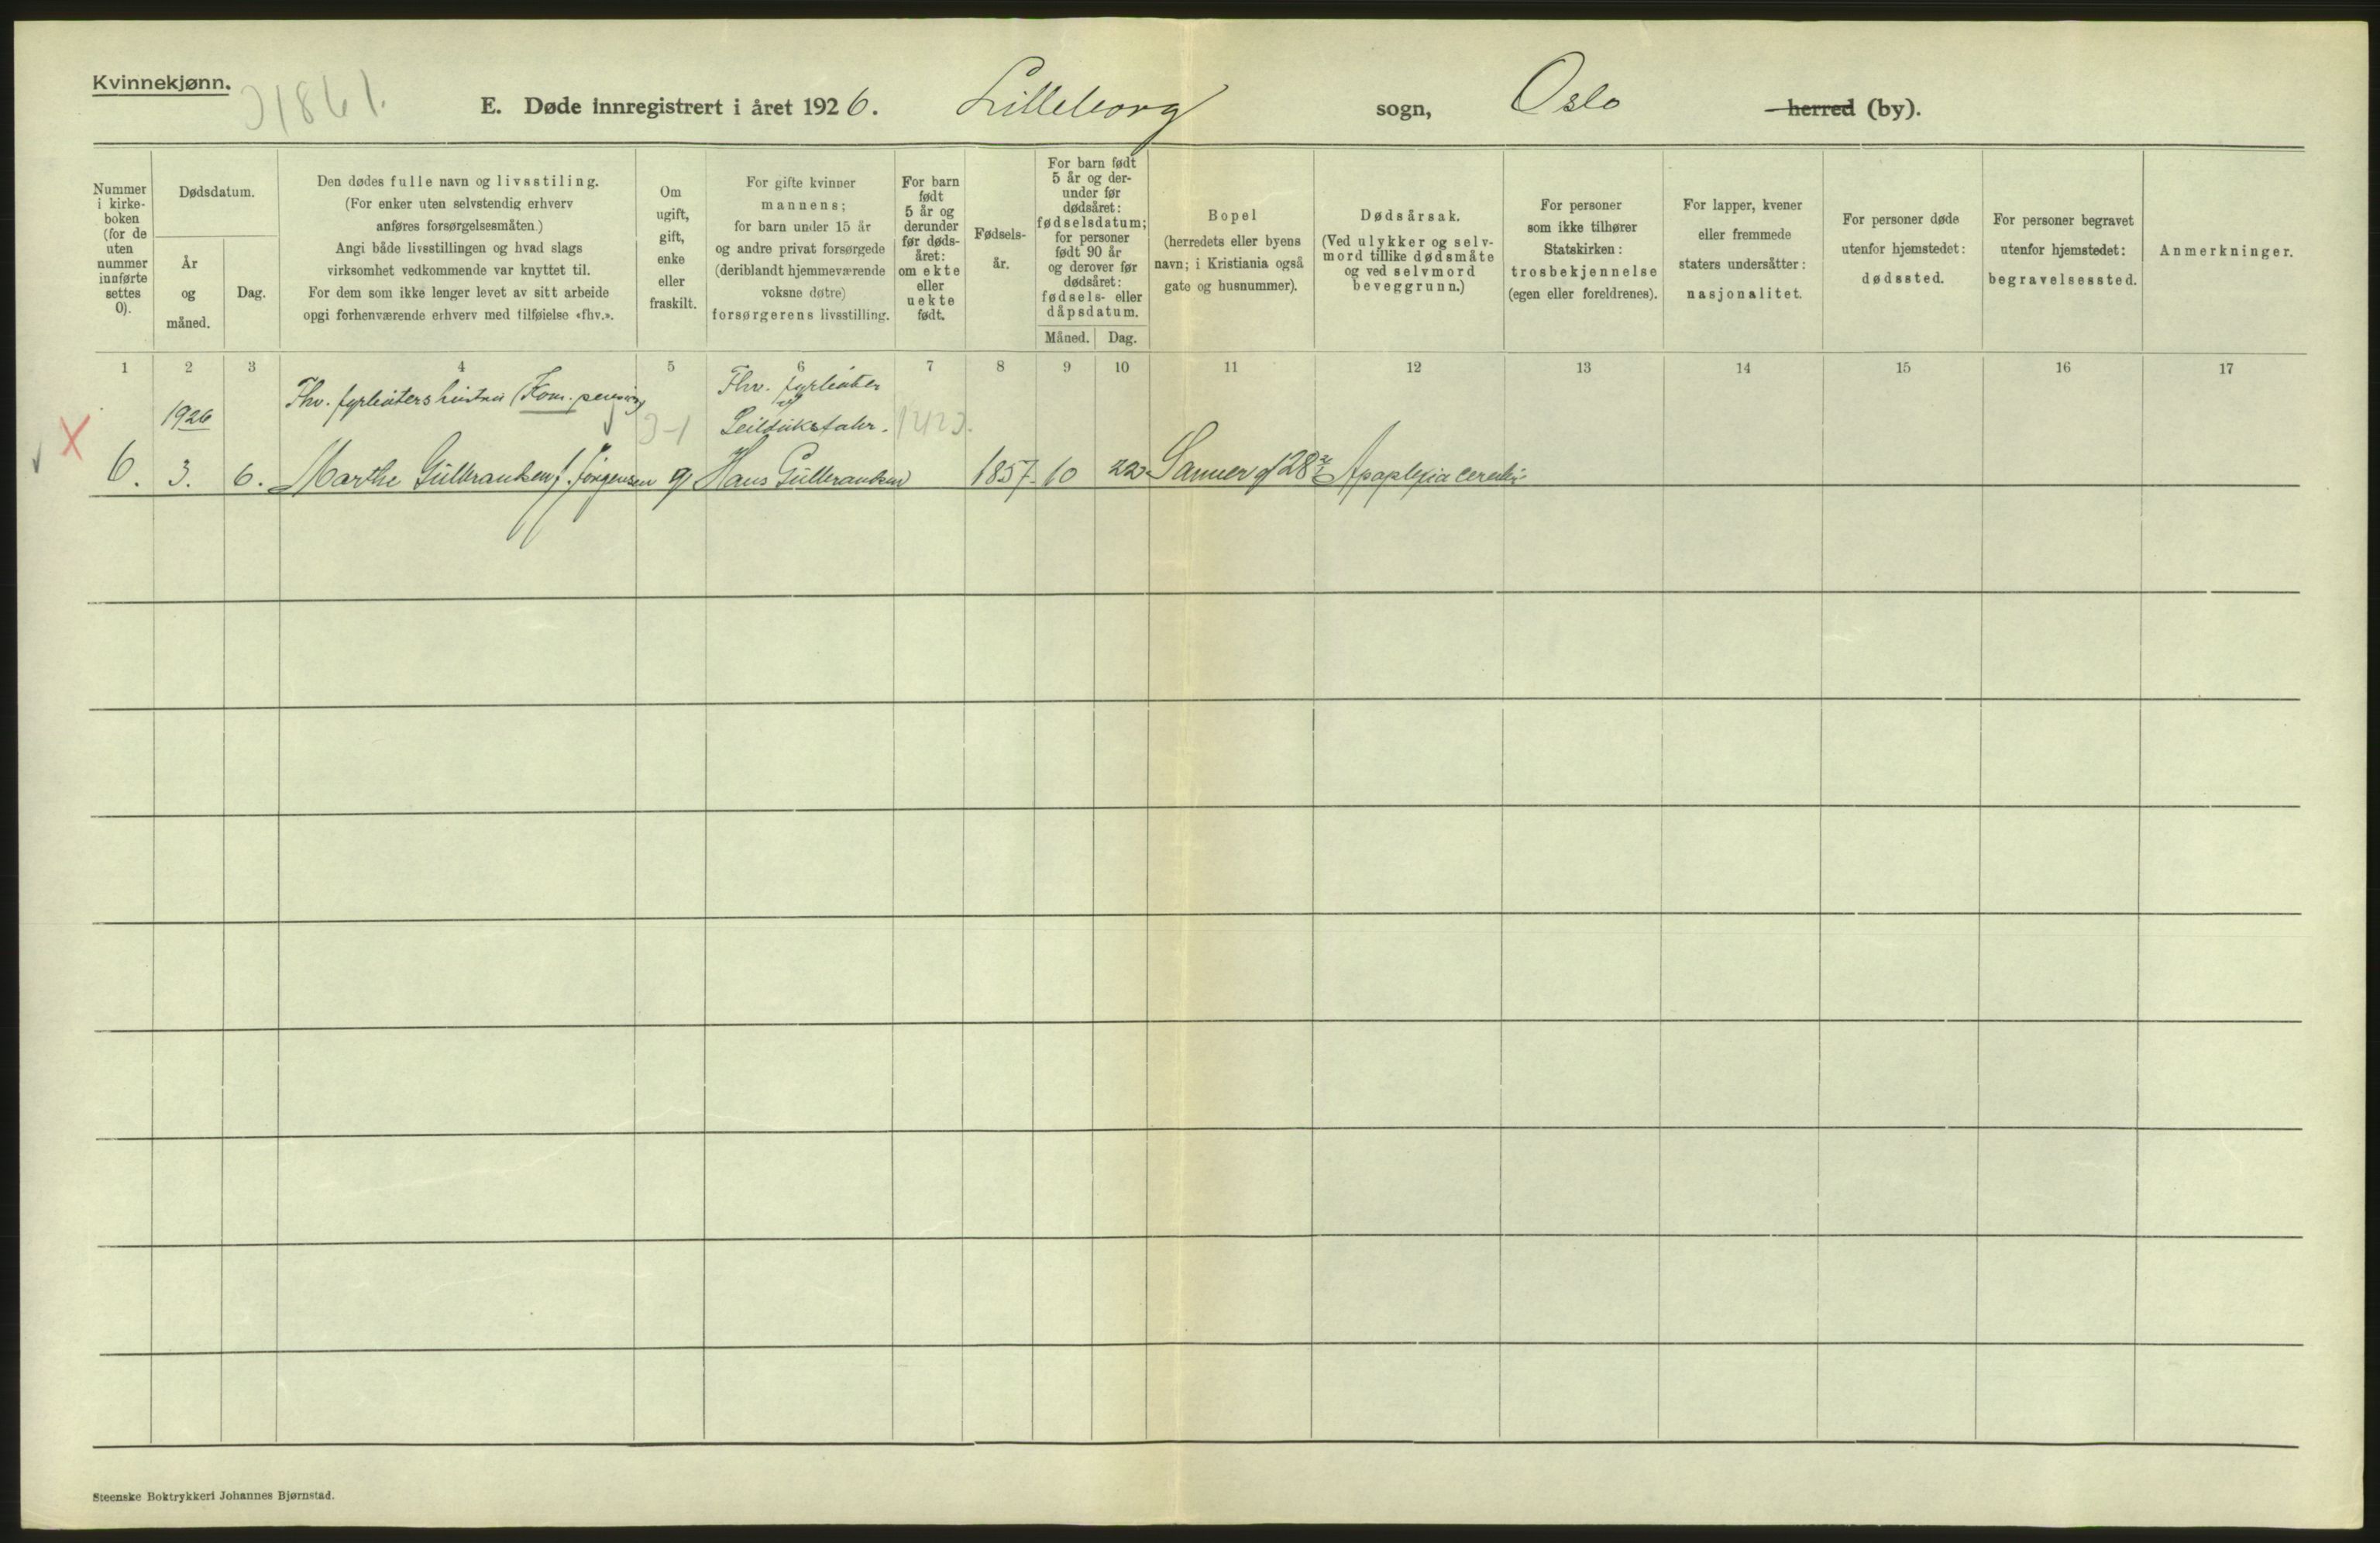 Kvinnekjønn.
31861.
E. Døde innregistrert i året 1926. Lilleborg sogn, Oslo herred (by).
Nummer
i kirke-
boken
(for de
uten
nummer
innførte
settes
0).
Dødsdatum.
År
og
måned.
Dag.
Den dødes fulle navn og livsstiling.
(For enker uten selvstendig erhverv
anføres forsørgelsesmåten.)
Angi både livsstillingen og hvad slags
virksomhet vedkommende var knyttet til.
For dem som ikke lenger levet av sitt arbeide
opgi forhenværende erhverv med tilføielse «fhv.».
Om
ugift,
gift,
enke
eller
fraskilt.
For gifte kvinner
mannens;
for barn under 15 år
og andre privat forsørgede
(deriblandt hjemmeværende
voksne døtre)
forsørgerens livsstilling.
For barn
født
5 år og
derunder
før døds-
året:
om ekte
eller
uekte
født.
Fødsels-
år.
For barn født
5 år og der-
under før
dødsåret:
fødselsdatum;
for personer
født 90 år
og derover før
dødsåret:
fødsels- eller
dåpsdatum.
Måned. Dag.
Bopel
(herredets eller byens
navn; i Kristiania også
gate og husnummer).
Dødsårsak.
(Ved ulykker og selv-
mord tillike dødsmåte
og ved selvmord
beveggrunn.)
For personer
som ikke tilhører
Statskirken:
trosbekjennelse
(egen eller foreldrenes).
For lapper, kvener
eller fremmede
staters undersåtter:
nasjonalitet.
For personer døde
utenfor hjemstedet:
dødssted.
For personer begravet
utenfor hjemstedet:
begravelsessted.
Anmerkninger.
1 2 3 4 5 6 7 8 9 10 11 12 13 14 15 16 17
Fhv. fyrbøters hustru (Kom. pensjon)
Fhv. fyrbøter
1926
3-1
Seilduksfabr.
6. 3. 6. Marthe Gulbrandsen f. Jørgensen g Hans Gulbrandsen 1857 10 22 Sanner g 28 Apoplexia cerebri
Steenske Boktrykkeri Johannes Bjørnstad.